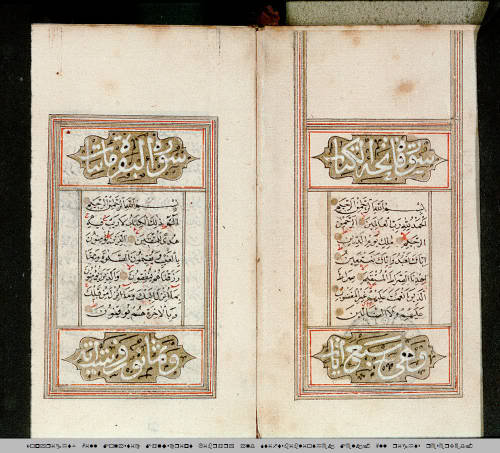 سورة فاتحة الكتاب
بسم الله الرحمن الرحيم
الحمد لله رب العالمين الرحمن
الرحيم ملك يوم الدين
اياك نعبد واياك نستعين
اهدنا الصراط المستقيم صراط
الذين انعمت عليهم غير المغضوب
عليهم ولا الضالين
وهي سبع ايات
سورة البقرة مائتان
بسم الله الرحمن الرحيم
الم ذلك الكتاب لا ريب فيه
هدى للمتقين الذين يؤمنون
بالغيب ويقيمون الصلوة ومما
رزقناهم ينفقون والذين يؤمنون
بما انزل اليك وما انزل من قبلك
وبالاخرة هم يوقنون
وثمانون